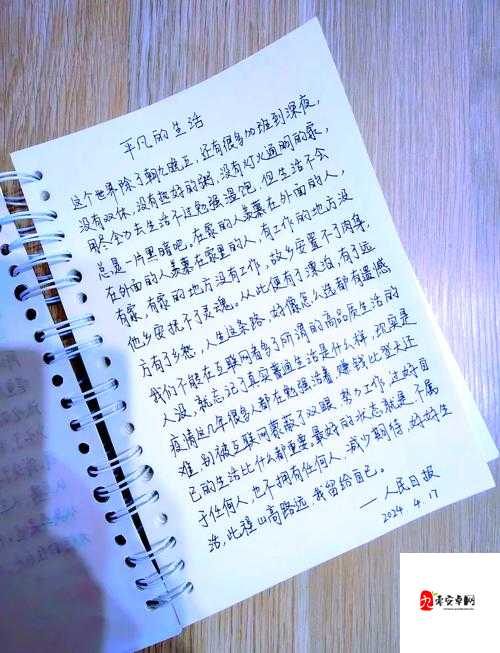 平凡的生活
这个世界除了朝九晚五，还有很多加班到深夜，
没有双休，没有起好的粥，没有灯火通明的家，
用尽全力去生活不过勉强温饱，但生活不会
总是一片黑暗吧。在家的人羡慕在外面的人，
在外面的人羡慕在家里的人，有工作的地方没
有家，有家的地方没有工作，故乡安置不了肉身，
他乡安抚不了灵魂。从此便有了漂泊，有了远
方有了乡愁，人生这条路，好像怎么选都有遗憾
我们不能在互联网看多了所谓的高品质生活的
人设，就忘记了真实普通生活是什么样，现实是
疫情这几年很多人都在勉强活着，赚钱比登天还
难，别被互联网蒙蔽了双眼，努力工作，过好自
己的生活比什么都重要，最好的状态就是，不属
于任何人，也不拥有任何人，减少期待，好好生
活，此程山高路远，我留给自己。
——人民日报
2024.4.17
零安卓网